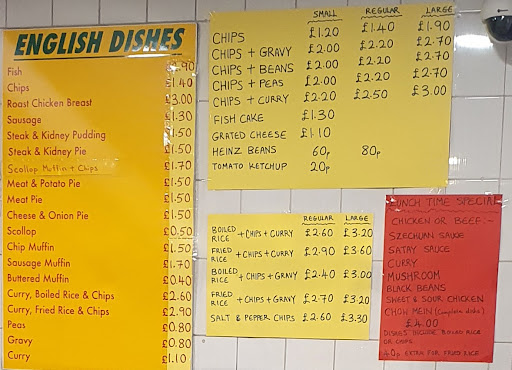 ENGLISH DISHES
Fish £3.90
Chips £1.40
Roast Chicken Breast £3.00
Sausage £1.30
Steak & Kidney Pudding £1.50
Steak & Kidney Pie £1.50
Scollop Muffin + Chips £1.70
Meat & Potato Pie £1.50
Meat Pie £1.50
Cheese & Onion Pie £1.50
Scollop £0.50
Chip Muffin £1.50
Sausage Muffin £1.70
Buttered Muffin £0.40
Curry, Boiled Rice & Chips £2.60
Curry, Fried Rice & Chips £2.90
Peas £0.80
Gravy £0.80
Curry £1.10
SMALL REGULAR LARGE
CHIPS £1.20 £1.40 £1.90
CHIPS + GRAVY £2.00 £2.20 £2.70
CHIPS + BEANS £2.00 £2.20 £2.70
CHIPS + PEAS £2.00 £2.20 £2.70
CHIPS + CURRY £2.20 £2.50 £3.00
FISH CAKE £1.30
GRATED CHEESE £1.10
HEINZ BEANS 60p 80p
TOMATO KETCHUP 20p
REGULAR LARGE
BOILED RICE + CHIPS + CURRY £2.60 £3.20
FRIED RICE + CHIPS + CURRY £2.90 £3.60
BOILED RICE + CHIPS + GRAVY £2.40 £3.00
FRIED RICE + CHIPS + GRAVY £2.70 £3.20
SALT & PEPPER CHIPS £2.60 £3.30
LUNCH TIME SPECIAL
CHICKEN OR BEEF:-
SZECHUAN SAUCE
SATAY SAUCE
CURRY
MUSHROOM
BLACK BEANS
SWEET & SOUR CHICKEN
CHOW MEIN (Complete dish)
£4.00
DISHES INCLUDE BOILED RICE
OR CHIPS
40p EXTRA FOR FRIED RICE